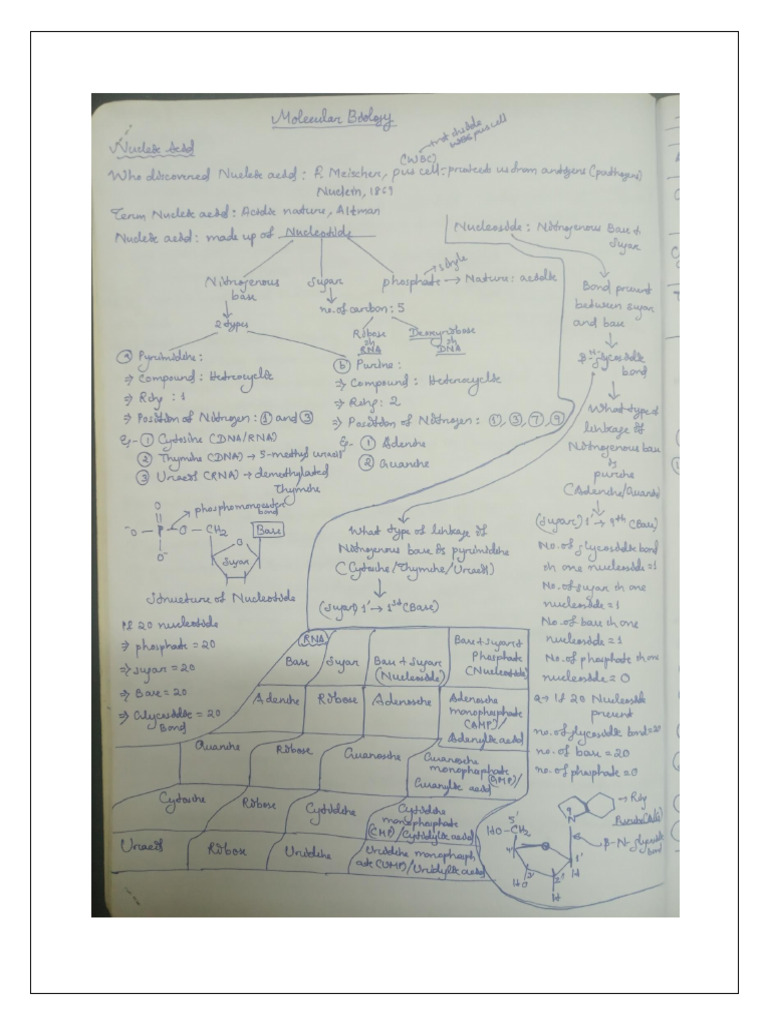 Molecular Biology
Nucleic Acid
(WBC)
Who discovered Nucleic acid: F. Meischer, pus cell - protects us from antigens (pathogens)
Nuclein, 1869
Term Nucleic acid: Acidic nature, Altman
Nucleic acid: made up of Nucleotide
Nitrogenous base
Sugar
phosphate → Nature: acidic
no. of carbon: 5
Ribose in RNA
Deoxyribose in DNA
2 types
(a) Pyrimidine:
⇒ Compound: Heterocyclic
⇒ Ring: 1
⇒ Position of Nitrogen: (1) and (3)
Eg- (1) Cytosine (DNA/RNA)
(2) Thymine (DNA) → 5-methyl uracil
(3) Uracil (RNA) → demethylated
Thymine
(b) Purine:
⇒ Compound: Heterocyclic
⇒ Ring: 2
⇒ Position of Nitrogen: (1), (3), (7), (9)
Eg- (1) Adenine
(2) Guanine
Nucleoside: Nitrogenous Base +
Sugar
Bond present
between sugar
and base
β-N-glycosidic
bond
What type of
linkage if
Nitrogenous base
is
purine
(Adenine/Guanine)
(Sugar) 1' → 9th (Base)
No. of glycosidic bond
in one nucleoside = 1
No. of sugar in one
nucleoside = 1
No. of base in one
nucleoside = 1
No. of phosphate in one
nucleoside = 0
Q → If 20 Nucleoside
present
no. of glycosidic bond = 20
no. of base = 20
no. of phosphate = 0
What type of linkage if
Nitrogenous base is pyrimidine
(Cytosine/Thymine/Uracil)
(Sugar) 1' → 1st (Base)
phosphomonoester
bond
O
⁻O – P – O – CH₂
O⁻
Base
O
Sugar
Structure of Nucleotide
If 20 nucleotide
⇒ phosphate = 20
⇒ sugar = 20
⇒ Base = 20
⇒ Glycosidic = 20
Bond
RNA
Base
Sugar
Base + Sugar
(Nucleoside)
Base + Sugar +
Phosphate
(Nucleotide)
Adenine
Ribose
Adenosine
Adenosine
monophosphate
(AMP)/
Adenylic acid
Guanine
Ribose
Guanosine
Guanosine
monophosphate
(GMP)/
Guanylic acid
Cytosine
Ribose
Cytidine
Cytidine
monophosphate
(CMP)/Cytidylic acid
Uracil
Ribose
Uridine
Uridine monophosph
ate (UMP)/Uridylic acid
9
N
→ Ring
β-N-glycosidic
bond
5'
HO-CH₂
4'
1'
H
3'
2'
HO
H